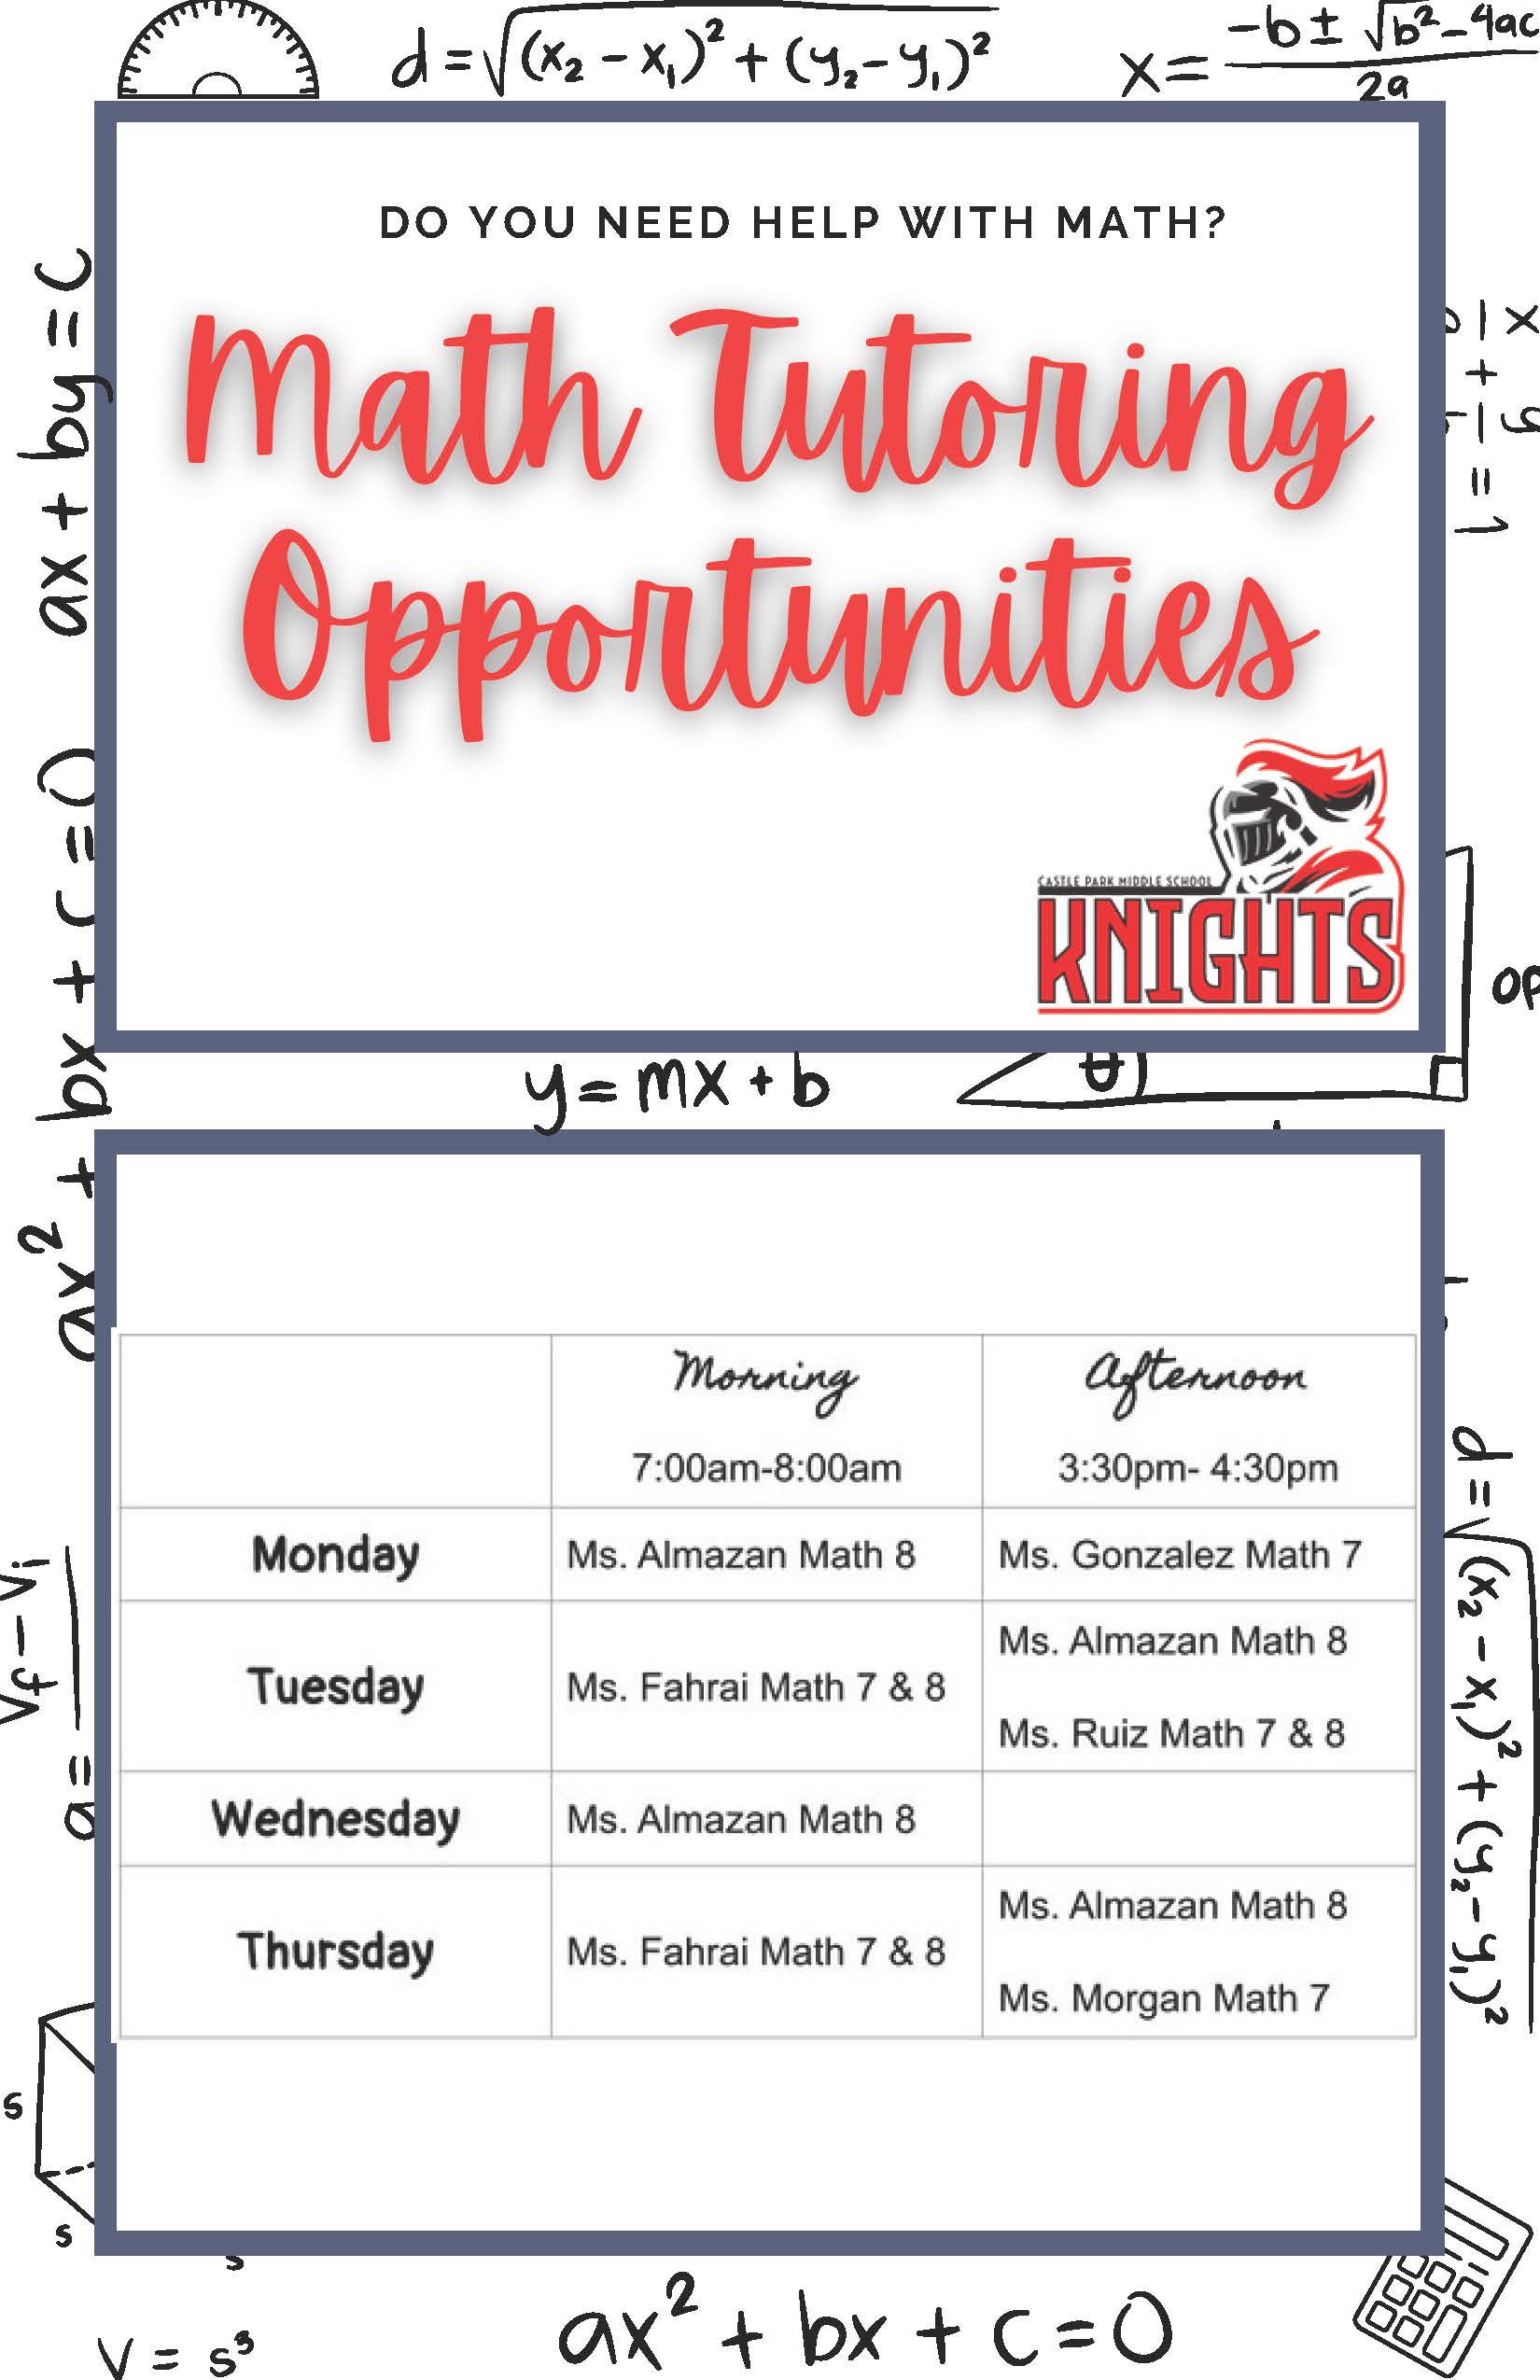 d = √(x₂ - x₁)² + (y₂ - y₁)²
x = -b ± √b² - 4ac
2a
DO YOU NEED HELP WITH MATH?
Math Tutoring
Opportunities
CASTLE PARK MIDDLE SCHOOL
KNIGHTS
ax + by = c
x + y = 1
ax² + bx + c = 0
y = mx + b
θ
Morning Afternoon
7:00am-8:00am 3:30pm- 4:30pm
Monday Ms. Almazan Math 8 Ms. Gonzalez Math 7
Tuesday Ms. Fahrai Math 7 & 8 Ms. Almazan Math 8
Ms. Ruiz Math 7 & 8
Wednesday Ms. Almazan Math 8
Thursday Ms. Fahrai Math 7 & 8 Ms. Almazan Math 8
Ms. Morgan Math 7
a = Vf - Vi
d = √(x₂ - x₁)² + (y₂ - y₁)²
s
s
s
V = s³
ax² + bx + c = 0